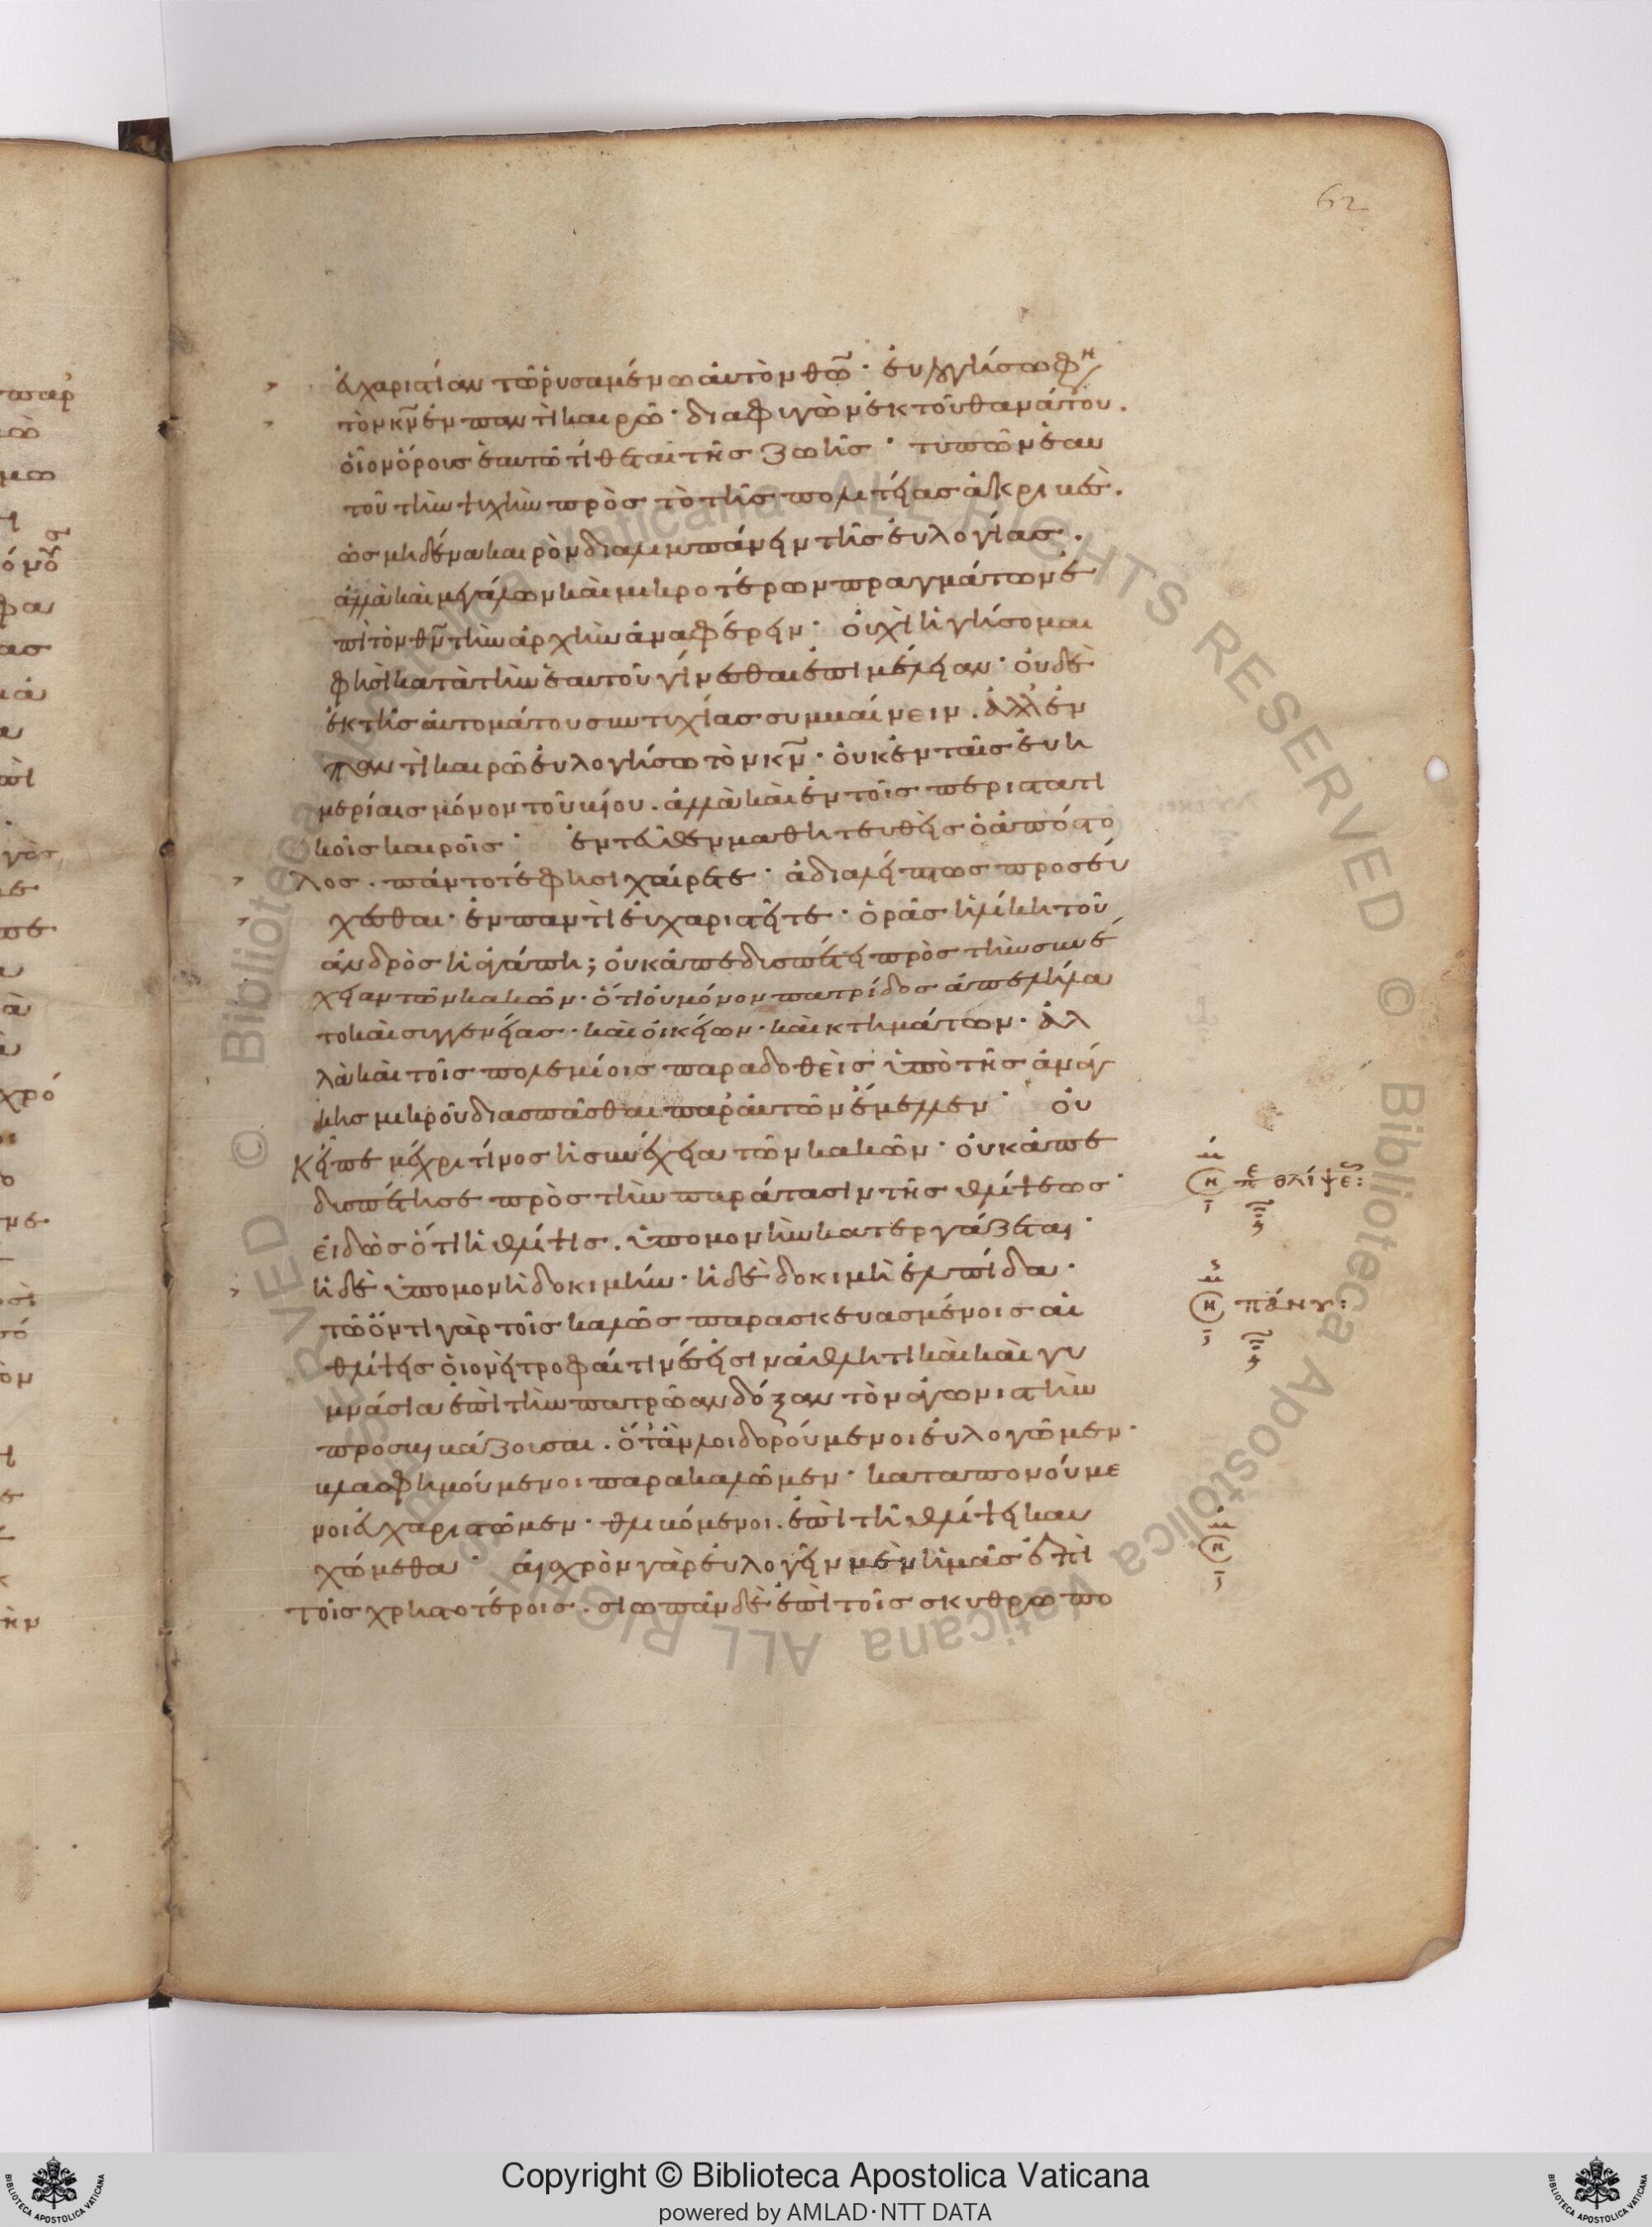 62
εὐχαριστίαν τῶ ῥυσαμένω αὐτὸν θῶ· εὐλογήσω φη
τὸν κν ἐν παντὶ καιρῶ· διαφυγὼν ἐκ τοῦ θανάτου.
οἷον ὅρους ἑαυτῶ τίθεται τῆς ζωῆς· τυπῶν ἑαυ
τοῦ τὴν ψυχὴν πρὸς τὸ τῆς πολιτείας ἀκριβὲς.
ὡς μηδένα καιρὸν διαλιμπάνειν τῆς εὐλογίας·
ἀλλὰ καὶ μεγάλων καὶ μικροτέρων πραγμάτων ἐ
πὶ τὸν θν τὴν ἀρχὴν ἀναφέρειν· οὐχὶ ἡγήσομαι
φησὶ κατὰ τὴν ἑαυτοῦ γίνεσθαι ἐπιμέλειαν· οὐδὲ
ἐκ τῆς αὐτομάτου συντυχίας συμβαίνειν. ἀλλ' ἐν
παντὶ καιρῶ εὐλογήσω τὸν κν· οὐκ ἐν ταῖς εὐη
μερίαις μόνον τοῦ βίου. ἀλλὰ καὶ ἐν τοῖς περιστατι
κοῖς καιροῖς· ἐντεῦθεν μαθητευθεὶς ὁ ἀπόστο
λος. πάντοτέ φησι χαίρετε· ἀδιαλείπτως προσεύ
χεσθαι· ἐν παντὶ εὐχαριστεῖτε· ὁρᾶς ἡλίκη τοῦ
ἀνδρὸς ἡ ἀγάπη; οὐκ ἀπεδυσπέτει πρὸς τὴν συνέ
χειαν τῶν κακῶν· ὅτι οὐ μόνον πατρίδος ἀπελήλα
το καὶ συγγενείας· καὶ οἰκείων· καὶ κτημάτων· ἀλ
λὰ καὶ τοῖς πολεμίοις παραδοθεὶς ὑπὸ τῆς ἀνάγ
κης μικροῦ διασπᾶσθαι παρ' αὐτῶν ἔμελλεν· οὐ
κ εἶπε μέχρι τίνος ἡ συνέχεια τῶν κακῶν· οὐκ ἀπε
δυσπέτησε πρὸς τὴν παράτασιν τῆς θλίψεως·
εἰδὼς ὅτι ἡ θλίψις. ὑπομονὴν κατεργάζεται·
ἡ δὲ ὑπομονὴ δοκιμήν· ἡ δὲ δοκιμὴ ἐλπίδα·
τῶ ὄντι γὰρ τοῖς καλῶς παρασκευασμένοις αἱ
θλίψεις οἱονεὶ τροφαί τινές εἰσιν ἀθλητικαὶ καὶ γυ
μνάσια ἐπὶ τὴν πατρῶαν δόξαν τὸν ἀγωνιστὴν
προσβιβάζουσαι. ὅτ' ἂν λοιδορούμενοι εὐλογῶμεν·
βλασφημούμενοι παρακαλῶμεν· καταπονούμε
νοι εὐχαριστῶμεν· θλιβόμενοι. ἐπὶ τῆ θλίψει καυ
χώμεθα· αἰσχρὸν γὰρ εὐλογεῖν μὲν ἡμᾶς ἐπὶ
τοῖς χρηστοτέροις. σιωπᾶν δὲ ἐπὶ τοῖς σκυθρωπο
θλίψε:
πάνυ:
Copyright © Biblioteca Apostolica Vaticana
powered by AMLAD·NTT DATA